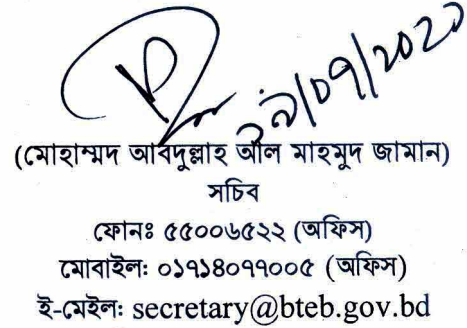 ২৯/০৭/২০২০
(মোহাম্মদ আবদুল্লাহ আল মাহমুদ জামান)
সচিব
ফোনঃ ৫৫০০৬৫২২ (অফিস)
মোবাইল: ০১৭১৪০৭৭০০৫ (অফিস)
ই-মেইল: secretary@bteb.gov.bd